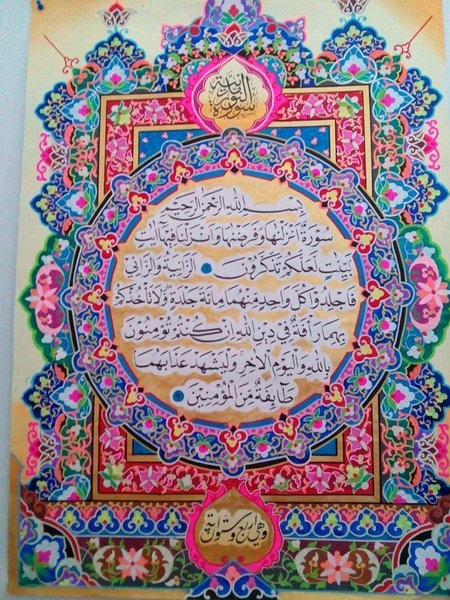 سورة النور مدنية
بِسْمِ اللهِ الرَّحْمٰنِ الرَّحِيْمِ
سُوْرَةٌ اَنْزَلْنٰهَا وَفَرَضْنٰهَا وَاَنْزَلْنَا فِيْهَا اٰيٰتٍ
بَيِّنٰتٍ لَعَلَّكُمْ تَذَكَّرُوْنَ اَلزَّانِيَةُ وَالزَّانِيْ
فَاجْلِدُوْا كُلَّ وَاحِدٍ مِنْهُمَا مِائَةَ جَلْدَةٍ وَلَا تَأْخُذْكُمْ
بِهِمَا رَأْفَةٌ فِيْ دِيْنِ اللهِ اِنْ كُنْتُمْ تُؤْمِنُوْنَ
بِاللهِ وَالْيَوْمِ الْاٰخِرِ وَلْيَشْهَدْ عَذَابَهُمَا
طَآئِفَةٌ مِنَ الْمُؤْمِنِيْنَ
وهي اربع وستون اية